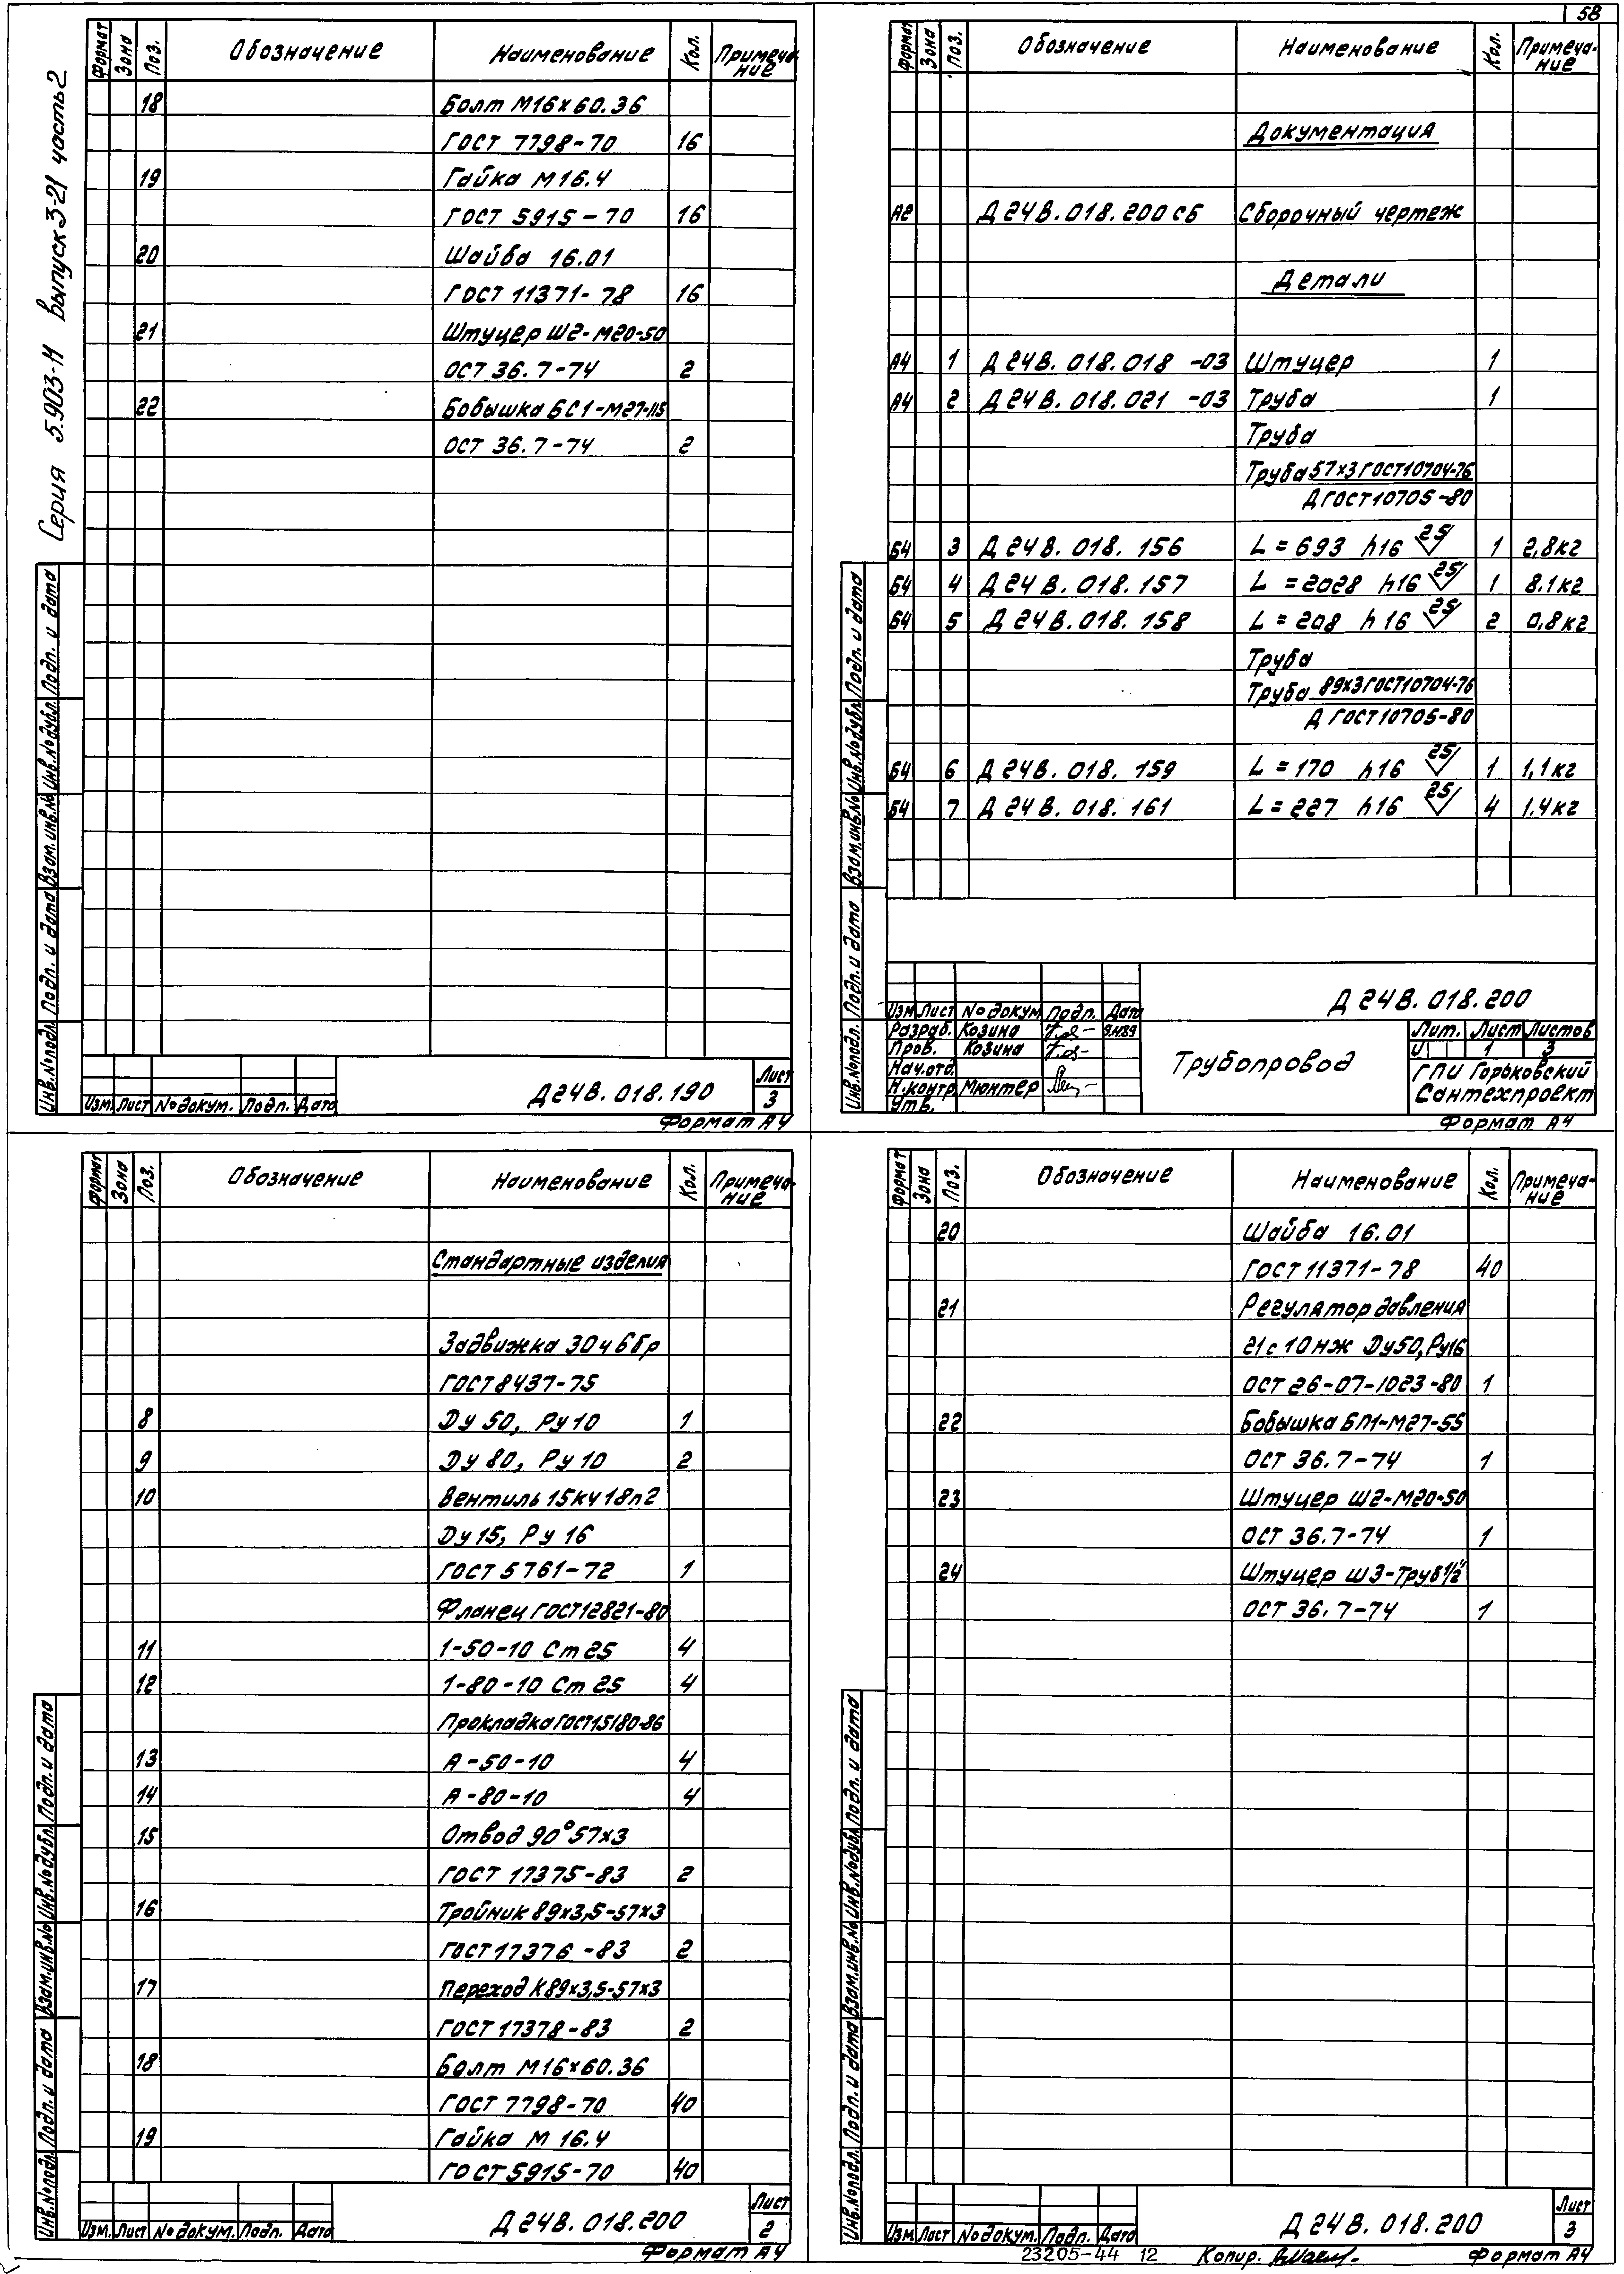 58
Серия 5.903-Н выпуск 3-21 часть 2
Формат Зона Поз. Обозначение Наименование Кол. Примеча-ние
18 Болт М16х60.36
ГОСТ 7798-70 16
19 Гайка М16.4
ГОСТ 5915-70 16
20 Шайба 16.01
ГОСТ 11371-78 16
21 Штуцер Ш2-М20-50
ОСТ 36.7-74 2
22 Бобышка БС1-М27-115
ОСТ 36.7-74 2
Инв.№подл. Подп. и дата Взам.инв.№ Инв.№дубл. Подп. и дата
Изм. Лист №докум. Подп. Дата
Д24В.018.190
Лист
3
Формат А4
Формат Зона Поз. Обозначение Наименование Кол. Примеча-ние
Документация
А2 Д24В.018.200сб Сборочный чертеж
Детали
А4 1 Д24В.018.018 -03 Штуцер 1
А4 2 Д24В.018.021 -03 Труба 1
Труба
Труба 57х3 ГОСТ10704-76
Д ГОСТ10705-80
Б4 3 Д24В.018.156 L=693 h16 25 1 2,8кг
Б4 4 Д24В.018.157 L=2028 h16 25 1 8.1кг
Б4 5 Д24В.018.158 L=208 h16 25 2 0,8кг
Труба
Труба 89х3 ГОСТ10704-76
Д ГОСТ10705-80
Б4 6 Д24В.018.159 L=170 h16 25 1 1,1кг
Б4 7 Д24В.018.161 L=227 h16 25 4 1.4кг
Инв.№подл. Подп. и дата Взам.инв.№ Инв.№дубл. Подп. и дата
Д24В.018.200
Изм. Лист №докум. Подп. Дата
Разраб. Козина
Пров. Козина
Нач.отд.
Н.контр. Мюнтер
Утв.
Трубопровод
Лит. Лист Листов
И 1 3
ГПИ Горьковский
Сантехпроект
Формат А4
Формат Зона Поз. Обозначение Наименование Кол. Примеча-ние
Стандартные изделия
Задвижка 30ч6бр
ГОСТ8437-75
8 Ду 50, Ру 10 1
9 Ду 80, Ру 10 2
10 Вентиль 15кч18п2
Ду 15, Ру 16
ГОСТ 5761-72 1
Фланец ГОСТ12821-80
11 1-50-10 Ст 25 4
12 1-80-10 Ст 25 4
Прокладка ГОСТ15180-86
13 А-50-10 4
14 А-80-10 4
15 Отвод 90°57х3
ГОСТ 17375-83 2
16 Тройник 89х3,5-57х3
ГОСТ17376-83 2
17 Переход К89х3,5-57х3
ГОСТ 17378-83 2
18 Болт М16х60.36
ГОСТ 7798-70 40
19 Гайка М 16.4
ГОСТ5915-70 40
Инв.№подл. Подп. и дата Взам.инв.№ Инв.№дубл. Подп. и дата
Изм. Лист №докум. Подп. Дата
Д24В.018.200
Лист
2
Формат А4
Формат Зона Поз. Обозначение Наименование Кол. Примеча-ние
20 Шайба 16.01
ГОСТ 11371-78 40
21 Регулятор давления
21с10нж Ду50, Ру16
ОСТ 26-07-1023-80 1
22 Бобышка БП1-М27-55
ОСТ 36.7-74 1
23 Штуцер Ш2-М20-50
ОСТ 36.7-74 1
24 Штуцер Ш3-Труб1/2"
ОСТ 36.7-74 1
Инв.№подл. Подп. и дата Взам.инв.№ Инв.№дубл. Подп. и дата
Изм. Лист №докум. Подп. Дата
Д24В.018.200
Лист
3
23205-44 12 Копир. Формат А4